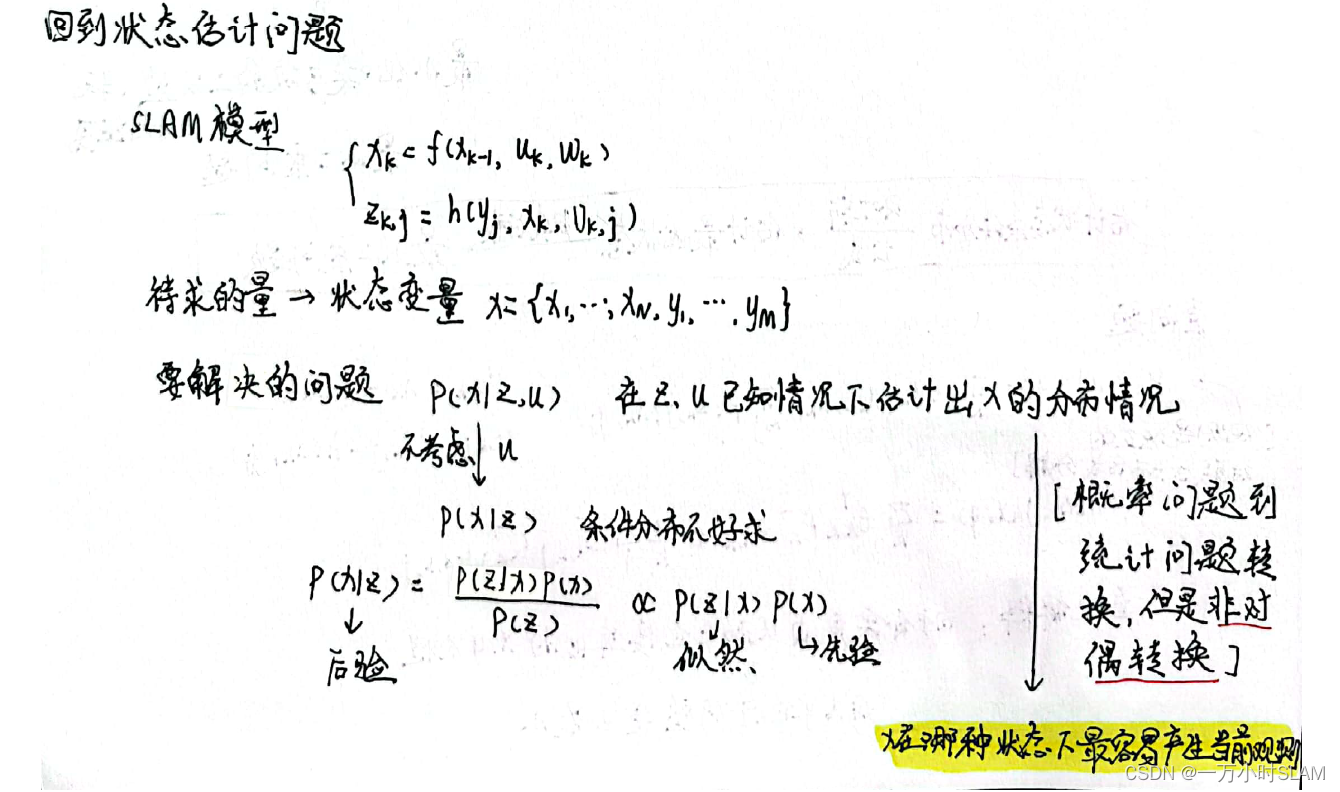 回到状态估计问题
SLAM模型
xk = f(xk-1, uk, wk)
zk,j = h(yj, xk, vk,j)
待求的量 → 状态变量 x={x1,…,xN, y1, …, yM}
要解决的问题 P(x|z,u) 在z、u已知情况下估计出x的分布情况
不考虑 u
P(x|z) 条件分布不好求
P(x|z) = P(z|x)P(x) / P(z) ∝ P(z|x) P(x)
后验 似然 先验
[概率问题到
统计问题转
换,但是非对
偶转换]
x在哪种状态下最容易产生当前观测
CSDN @一万小时SLAM